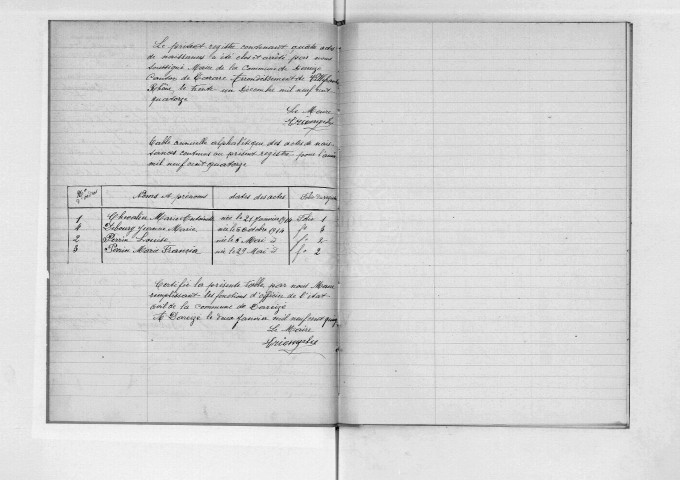 Le présent registre contenant quatre actes
de naissances a été clos et arrêté par nous
soussigné Maire de la Commune de Dareizé
Canton de Tarare Arrondissement de Villefranche
Rhône, le trente un Décembre mil neuf cent
quatorze
Le Maire
Table annuelle alphabétique des actes de nais-
sances contenus au présent registre pour l'année
mil neuf cent quatorze
Nos d'ordre Noms et prénoms dates des actes
1 Marie née le 21 Janvier 1914 Folio 1
4 Debourg Jeanne Marie née le 6 Octobre 1914 fo 3
2 Perrin Louise née le Mai d fo 2
3 Perrin Marie Francia née le 29 Mai d fo 2
Certifié la présente Table par nous Maire
remplissant les fonctions d'officier de l'état
civil de la commune de Dareizé
A Dareizé le deux Janvier mil neuf cent quinze
Le Maire